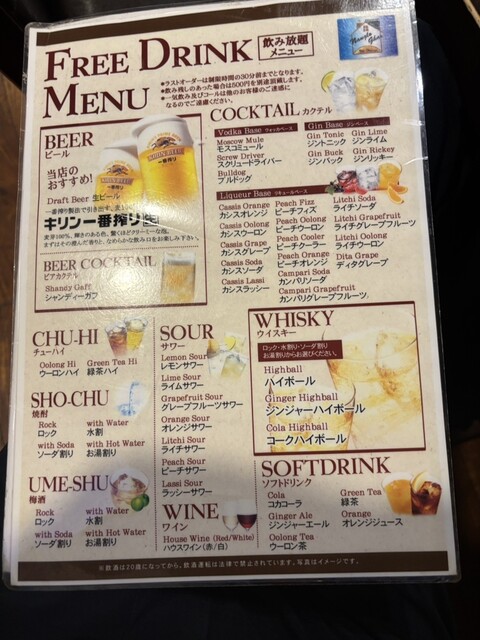 FREE DRINK MENU
飲み放題
メニュー
●ラストオーダーは制限時間の30分前までとなります。
●飲み残しのあった場合は500円を別途頂戴します。
●一気飲み及びコールは他のお客様のご迷惑に
なるのでご遠慮ください。
BEER
ビール
当店の
おすすめ!
Draft Beer 生ビール
キリン一番搾り生
BEER COCKTAIL
ビアカクテル
Shandy Gaff
シャンディーガフ
COCKTAIL カクテル
Vodka Base ウォッカベース
Moscow Mule
モスコミュール
Screw Driver
スクリュードライバー
Bulldog
ブルドッグ
Gin Base ジンベース
Gin Tonic
ジントニック
Gin Lime
ジンライム
Gin Buck
ジンバック
Gin Rickey
ジンリッキー
Liqueur Base リキュールベース
Cassis Orange
カシスオレンジ
Cassis Oolong
カシスウーロン
Cassis Grape
カシスグレープ
Cassis Soda
カシスソーダ
Cassis Lassi
カシスラッシー
Peach Fizz
ピーチフィズ
Peach Oolong
ピーチウーロン
Peach Cooler
ピーチクーラー
Peach Orange
ピーチオレンジ
Campari Soda
カンパリソーダ
Campari Grapefruit
カンパリグレープフルーツ
Litchi Soda
ライチソーダ
Litchi Grapefruit
ライチグレープフルーツ
Litchi Oolong
ライチウーロン
Dita Grape
ディタグレープ
CHU-HI
チューハイ
Oolong Hi
ウーロンハイ
Green Tea Hi
緑茶ハイ
SHO-CHU
焼酎
Rock
ロック
with Water
水割
with Soda
ソーダ割り
with Hot Water
お湯割り
UME-SHU
梅酒
Rock
ロック
with Water
水割
with Soda
ソーダ割り
with Hot Water
お湯割り
SOUR
サワー
Lemon Sour
レモンサワー
Lime Sour
ライムサワー
Grapefruit Sour
グレープフルーツサワー
Orange Sour
オレンジサワー
Litchi Sour
ライチサワー
Peach Sour
ピーチサワー
Lassi Sour
ラッシーサワー
WINE
ワイン
House Wine (Red/White)
ハウスワイン(赤/白)
WHISKY
ウイスキー
ロック・水割り・ソーダ割り
お湯割りからお選びください。
Highball
ハイボール
Ginger Highball
ジンジャーハイボール
Cola Highball
コークハイボール
SOFTDRINK
ソフトドリンク
Cola
コカコーラ
Green Tea
緑茶
Ginger Ale
ジンジャーエール
Orange
オレンジジュース
Oolong Tea
ウーロン茶
※飲酒は20歳になってから。飲酒運転は法律で禁止されています。写真はイメージです。